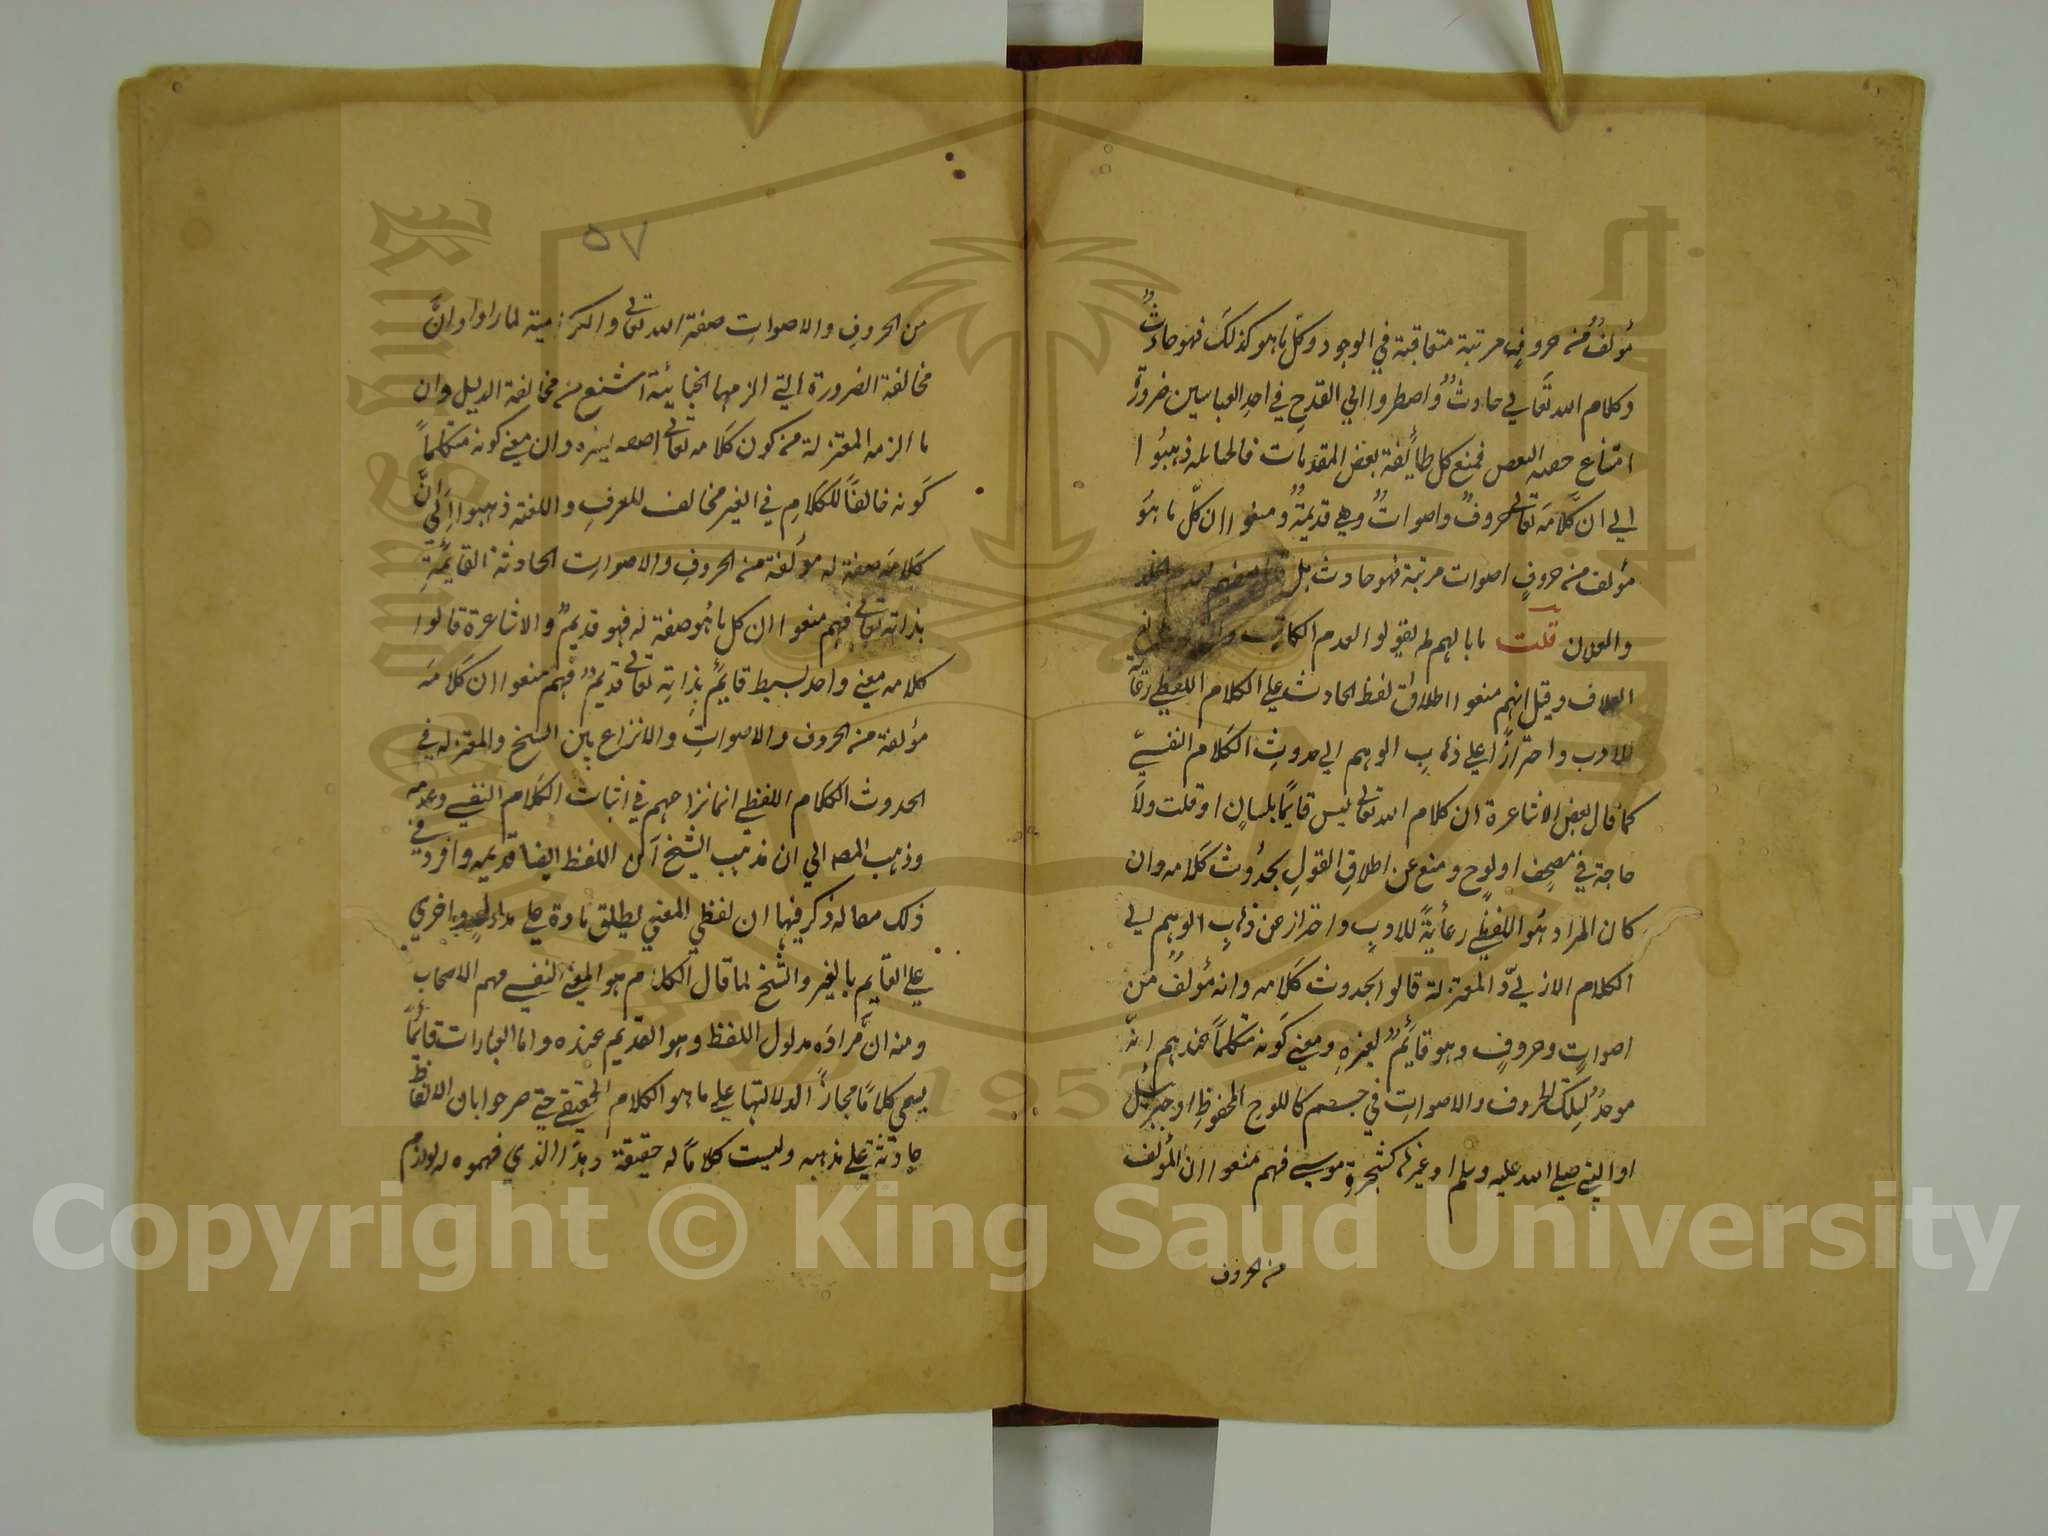 مؤلفٌ من حروفٍ مرتبة متعاقبة في الوجود وكل ما هو كذلك فهو حادثٌ
وكلام الله تعالي حادثٌ واضطروا الي القدح في احد القياسين ضرورة
امتناع حقية النقيضين فمنع كل طائفة بعض المقدمات فالحنابلة ذهبوا
الي ان كلامه تعالي حروفٌ واصواتٌ وهي قديمةٌ ومنعوا ان كل ما هو
مؤلف من حروفٍ اصوات مرتبة فهو حادث بل قال بعضهم بقدم الجلد
والغلاف قلت ما بالهم لم يقولوا بقدم الكاتب والمجلد وصانع
الغلاف وقيل انهم منعوا اطلاق لفظ الحادث علي الكلام اللفظي رعاية
للادب واحترازًا علي ذهاب الوهم الي حدوث الكلام النفسيّ
كما قال بعض الاشاعرة ان كلام الله تعالي ليس قايمًا بلسانٍ او قلت ولا
حاجة في مصحف او لوح ومنع عن اطلاق القول بحدُوث كلامه وان
كان المراد هُو اللفظي رعايةً للادب واحتراز عن ذهابِ الوهم الي
الكلام الازليّ والمعتزلة قالوا بحدوث كلامه وانه مؤلفٌ من
اصواتٍ وحروفٍ وهو قايمٌ بغيره ومعني كونه متكلماً عندهم انّه
موجدٌ لتلك الحروف والاصوات في جسم كاللوح المحفوظ او جبرئيل
او النبي صلي الله عليه وسلم او غيرها كشجرة موسي فهم منعوا ان المؤلف
من الحروف
٥٧
من الحروف والاصوات صفة الله تعالي والكرامية لما راوا وانَّ
مخالفة الضرورة التي الزمها الحنابلة اشنع من مخالفة الدليل وان
ما الزمه المعتزلة من كون كلامه تعالي صفة لغيره وان معني كونه متكلماً
كونه خالقاً للكلام في الغير مخالف للعرف واللغة ذهبوا الي انَّ
كلامه صفة له مؤلفة من الحروف والاصوات الحادثة القايمة
بذاته تعالي فهم منعوا ان كل ما هُو صفة له فهو قديمٌ والاشاعرة قالوا
كلامه معني واحد بسيط قايمٌ بذاته تعالي قديمٌ فهم منعوا ان كلامه
مؤلفة من الحروف والاصوات والانزاع بين الشيخ والمعتزله في
الحدوث الكلام اللفظي انما نزاعهم في اثبات الكلام النفسي وعدمه
وذهب المص الي ان مذهب الشيخ ان اللفظ ايضا قديمه وافرد في
ذلك مقاله ذكر فيها ان لفظي المعني يطلق تارة علي مدلول واخري
علي القايم بالغير والشيخ لما قال الكلام هو المعني النفسي فهم الاصحاب
ومنه انَّ مرادَه مدلول اللفظ وهو القديم عنده واما العبارات فانما
يسمي كلامًا مجازًا لدلالتها علي ما هو الكلام الحقيقي حتي صرحوا بان الالفاظ
حادثة علي مذهبه وليست كلامًا له حقيقةً وهذا الذي فهموه له لوازم
Copyright © King Saud University